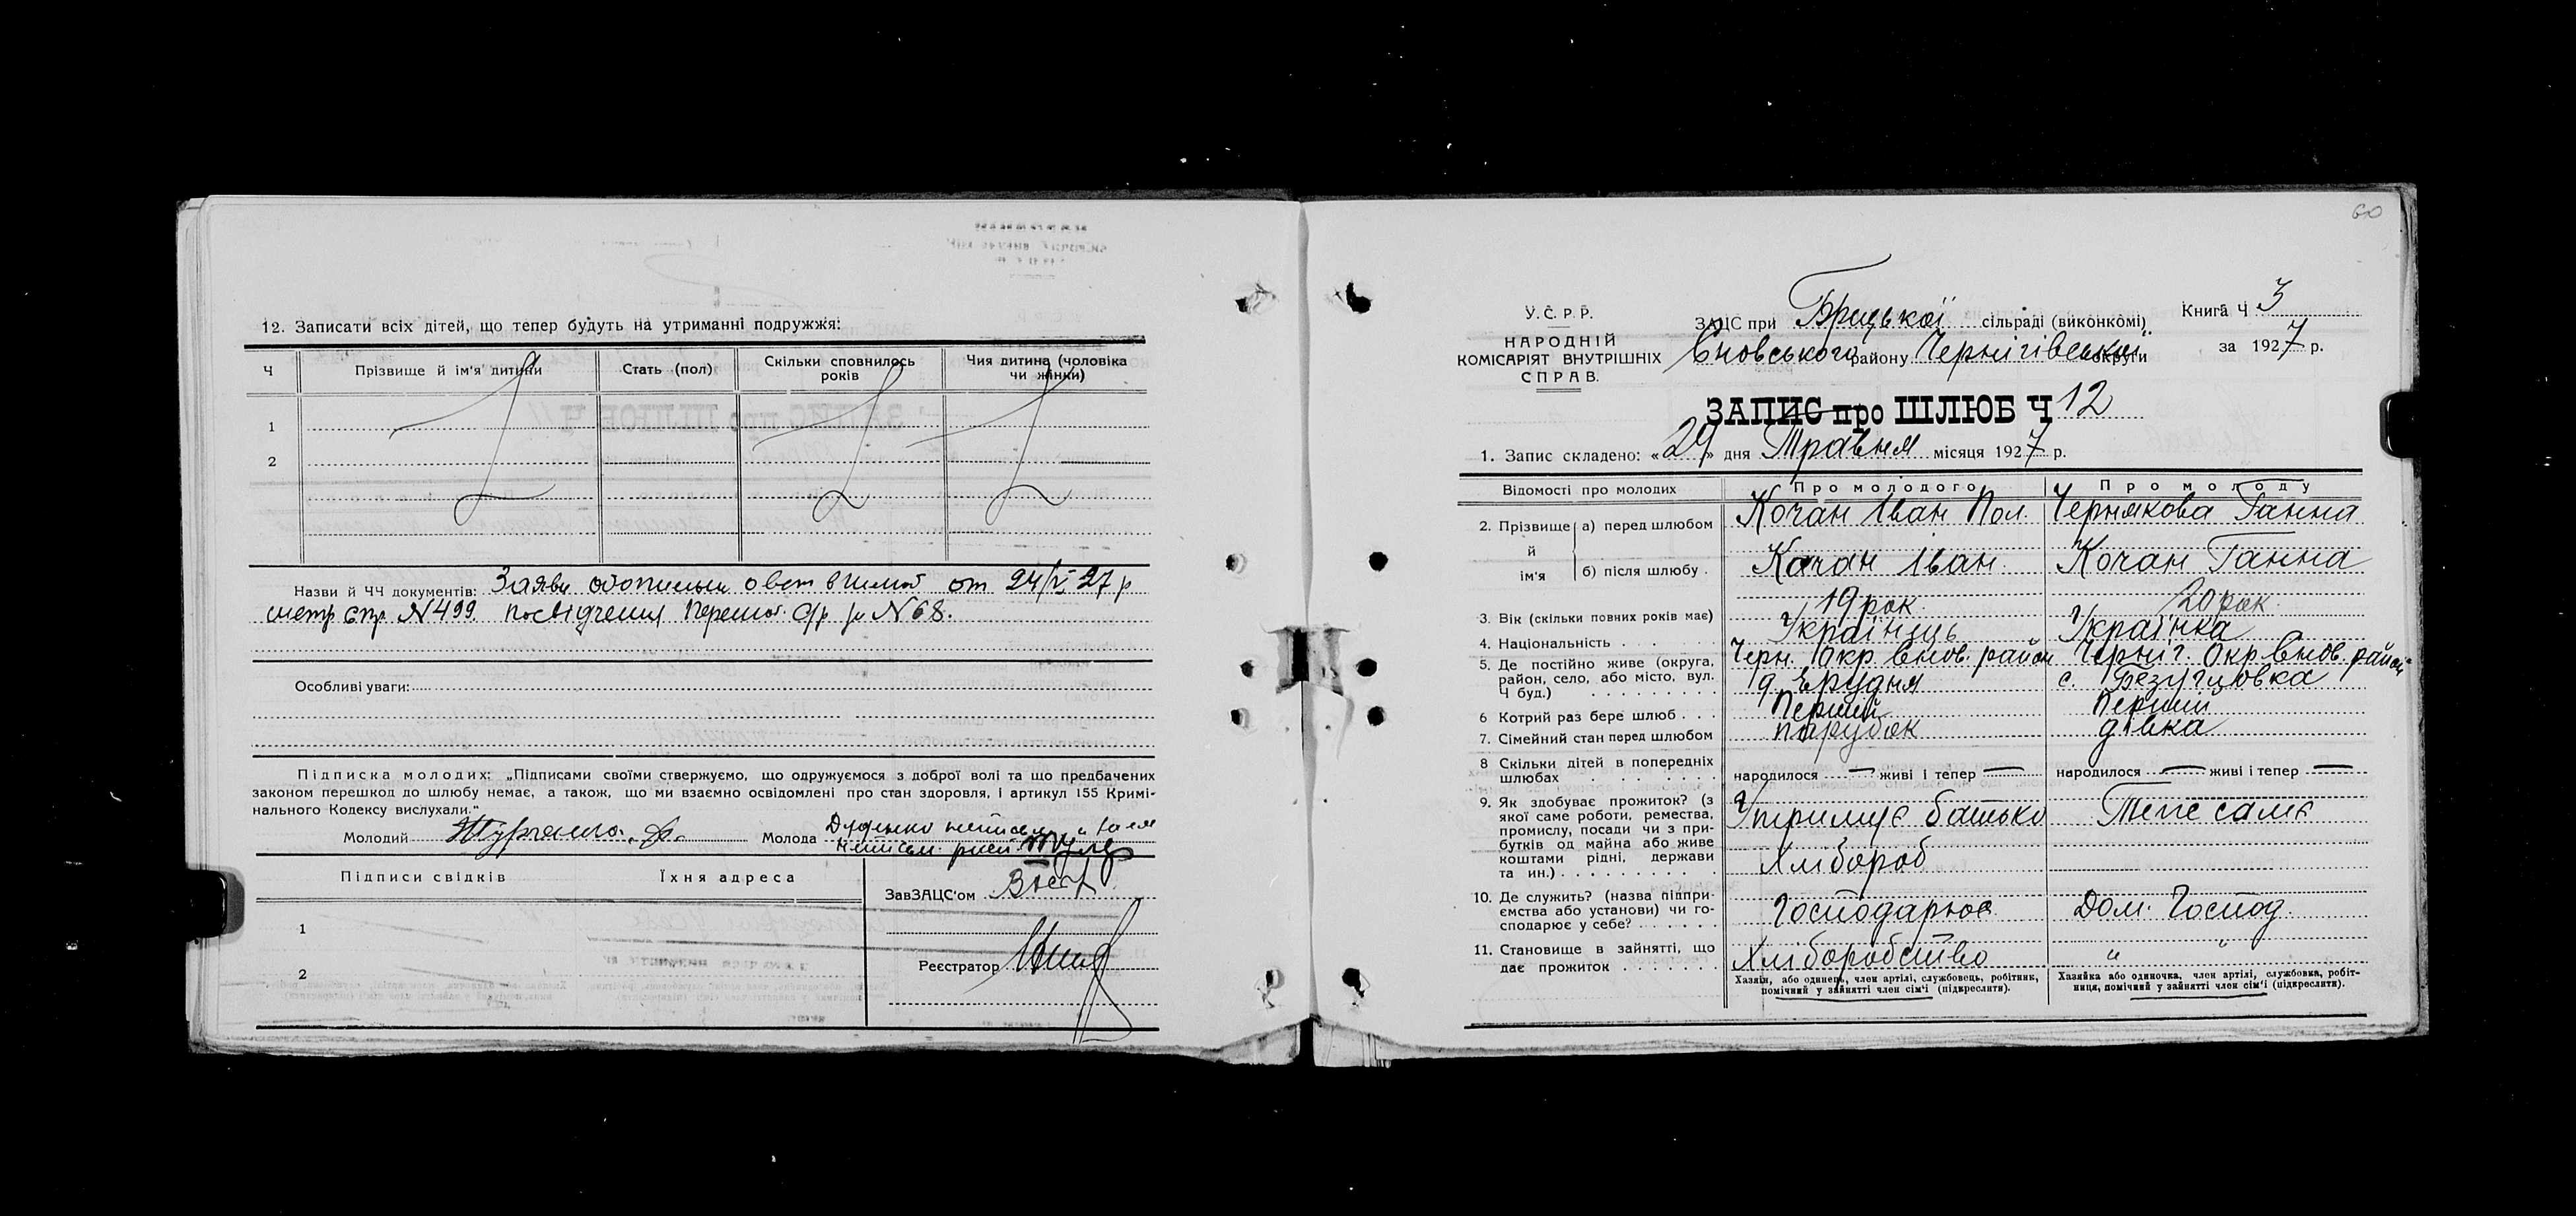 12. Записати всіх дітей, що тепер будуть на утриманні подружжя:
Ч
Прізвище й ім'я дитини
Стать (пол)
Скільки сповнилось років
Чия дитина (чоловіка чи жінки)
1
2
Назви й ЧЧ документів: Заяви от 24/V 27 р
№ 499. посвідчення № 68.
Особливі уваги:
Підписка молодих: „Підписами своїми стверджуємо, що одружуємося з доброї волі та що предбачених
законом перешкод до шлюбу немає, а також, що ми взаємно освідомлені про стан здоровля, і артикул 155 Кримі-
нального Кодексу вислухали."
Молодий
Молода
Підписи свідків
Їхня адреса
ЗавЗАЦС'ом
1
Реєстратор
2
60
У.С.Р.Р.
НАРОДНІЙ
КОМІСАРІЯТ ВНУТРІШНІХ
СПРАВ.
ЗАЦС при сільраді (виконкомі)
району Чернігівської округи
Книга Ч 3
за 1927 р.
ЗАПИС про ШЛЮБ Ч 12
1. Запис складено: «29» дня Травня місяця 1927 р.
Відомості про молодих
Про молодого
Про молоду
2. Прізвище й ім'я
а) перед шлюбом
Кочан Іван Пол.
Чернякова Ганна
б) після шлюбу .
Кочан Іван.
Кочан Ганна
3. Вік (скільки повних років має)
19 рок.
20 рок.
4. Національність . . .
Українець
Українка
5. Де постійно живе (округа,
район, село, або місто, вул.
Ч буд.) . . . . . . . . .
Черн. Окр. район
Черніг. Окр. район
с.
6 Котрий раз бере шлюб . . .
Перший
Перший
7. Сімейний стан перед шлюбом
парубок
дівка
8 Скільки дітей в попередніх
шлюбах . . . . . .
народилося — живі і тепер —
народилося — живі і тепер —
9. Як здобуває прожиток? (з
якої саме роботи, ремества,
промислу, посади чи з при-
бутків од майна або живе
коштами рідні, держави
та ин.) . . . . . . . . .
Утримує батько
Хлібороб
Теж саме
10. Де служить? (назва підпри-
ємства або установи) чи го-
сподарює у себе? . . . . . .
Господарює
Дом. Господ.
11. Становище в зайнятті, що
дає прожиток . . . . . . .
Хліборобство
" "
Хазяїн, або одинець, член артілі, службовець, робітник,
помічний у зайнятті член сім'ї (підкреслити).
Хазяйка або одиночка, член артілі, службовка, робіт-
ниця, помічний у зайнятті член сім'ї (підкреслити).